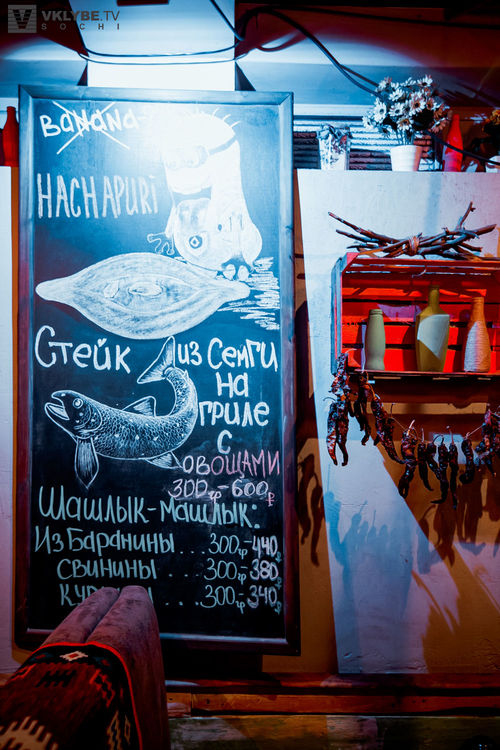 VKLYBE.TV
SOCHI
BANANA-
HACHAPURi
Стейк из Семги
на
гриле
с
овощами
300гр-600р
Шашлык-Машлык:
Из Баранины....300гр-440р
свинины ....300гр-380р
....300гр-340р